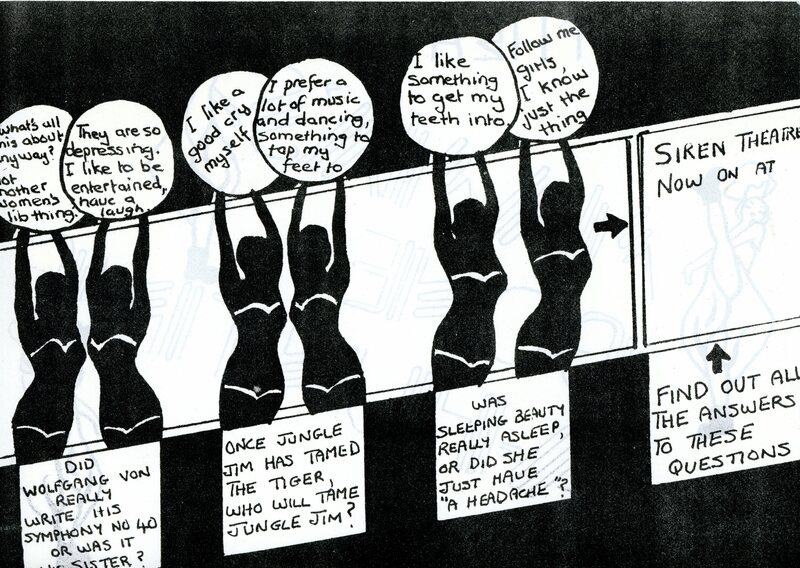 what's all
this about
anyway?
Not
another
women's
lib thing.
They are so
depressing.
I like to be
entertained,
have a
laugh
I like a
good cry
myself
I prefer a
lot of music
and dancing,
something to
tap my
feet to
I like
something
to get my
teeth into
Follow me
girls,
I know
just the
thing
SIREN THEATRE
NOW ON AT
DID
WOLFGANG VON
REALLY
WRITE HIS
SYMPHONY NO 40
OR WAS IT
HIS SISTER?
ONCE JUNGLE
JIM HAS TAMED
THE TIGER,
WHO WILL TAME
JUNGLE JIM?
WAS
SLEEPING BEAUTY
REALLY ASLEEP,
OR DID SHE
JUST HAVE
"A HEADACHE"?
FIND OUT ALL
THE ANSWERS
TO THESE
QUESTIONS